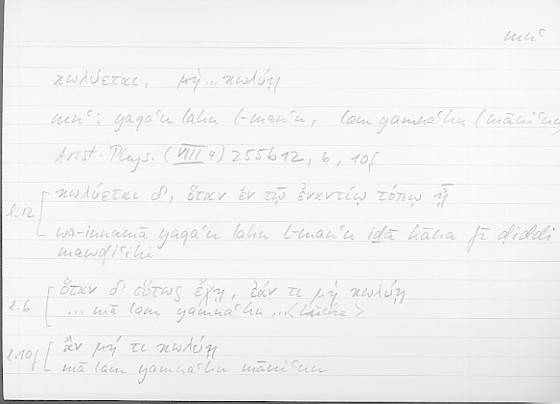 mnʿ
κωλύεται, μὴ... κωλύῃ
mnʿ: yaqaʿu lahu l-manʿu, lam yamnaʿhu (māniʿun
Arist. Phys. (VIII 4) 255b12, 6, 10f
l.12 κωλύεται δ', ὅταν ἐν τῷ ἐναντίῳ τόπῳ ᾖ
wa-innamā yaqaʿu lahu l-manʿu iḏā kāna fī ḍiddi
mawḍiʿihi
l.6 ὅταν δ' οὕτως ἔχῃ, ἐάν τι μὴ κωλύῃ
... mā lam yamnaʿhu ... <Lücke>
l.10f ἂν μή τι κωλύῃ
mā lam yamnaʿhu māniʿun